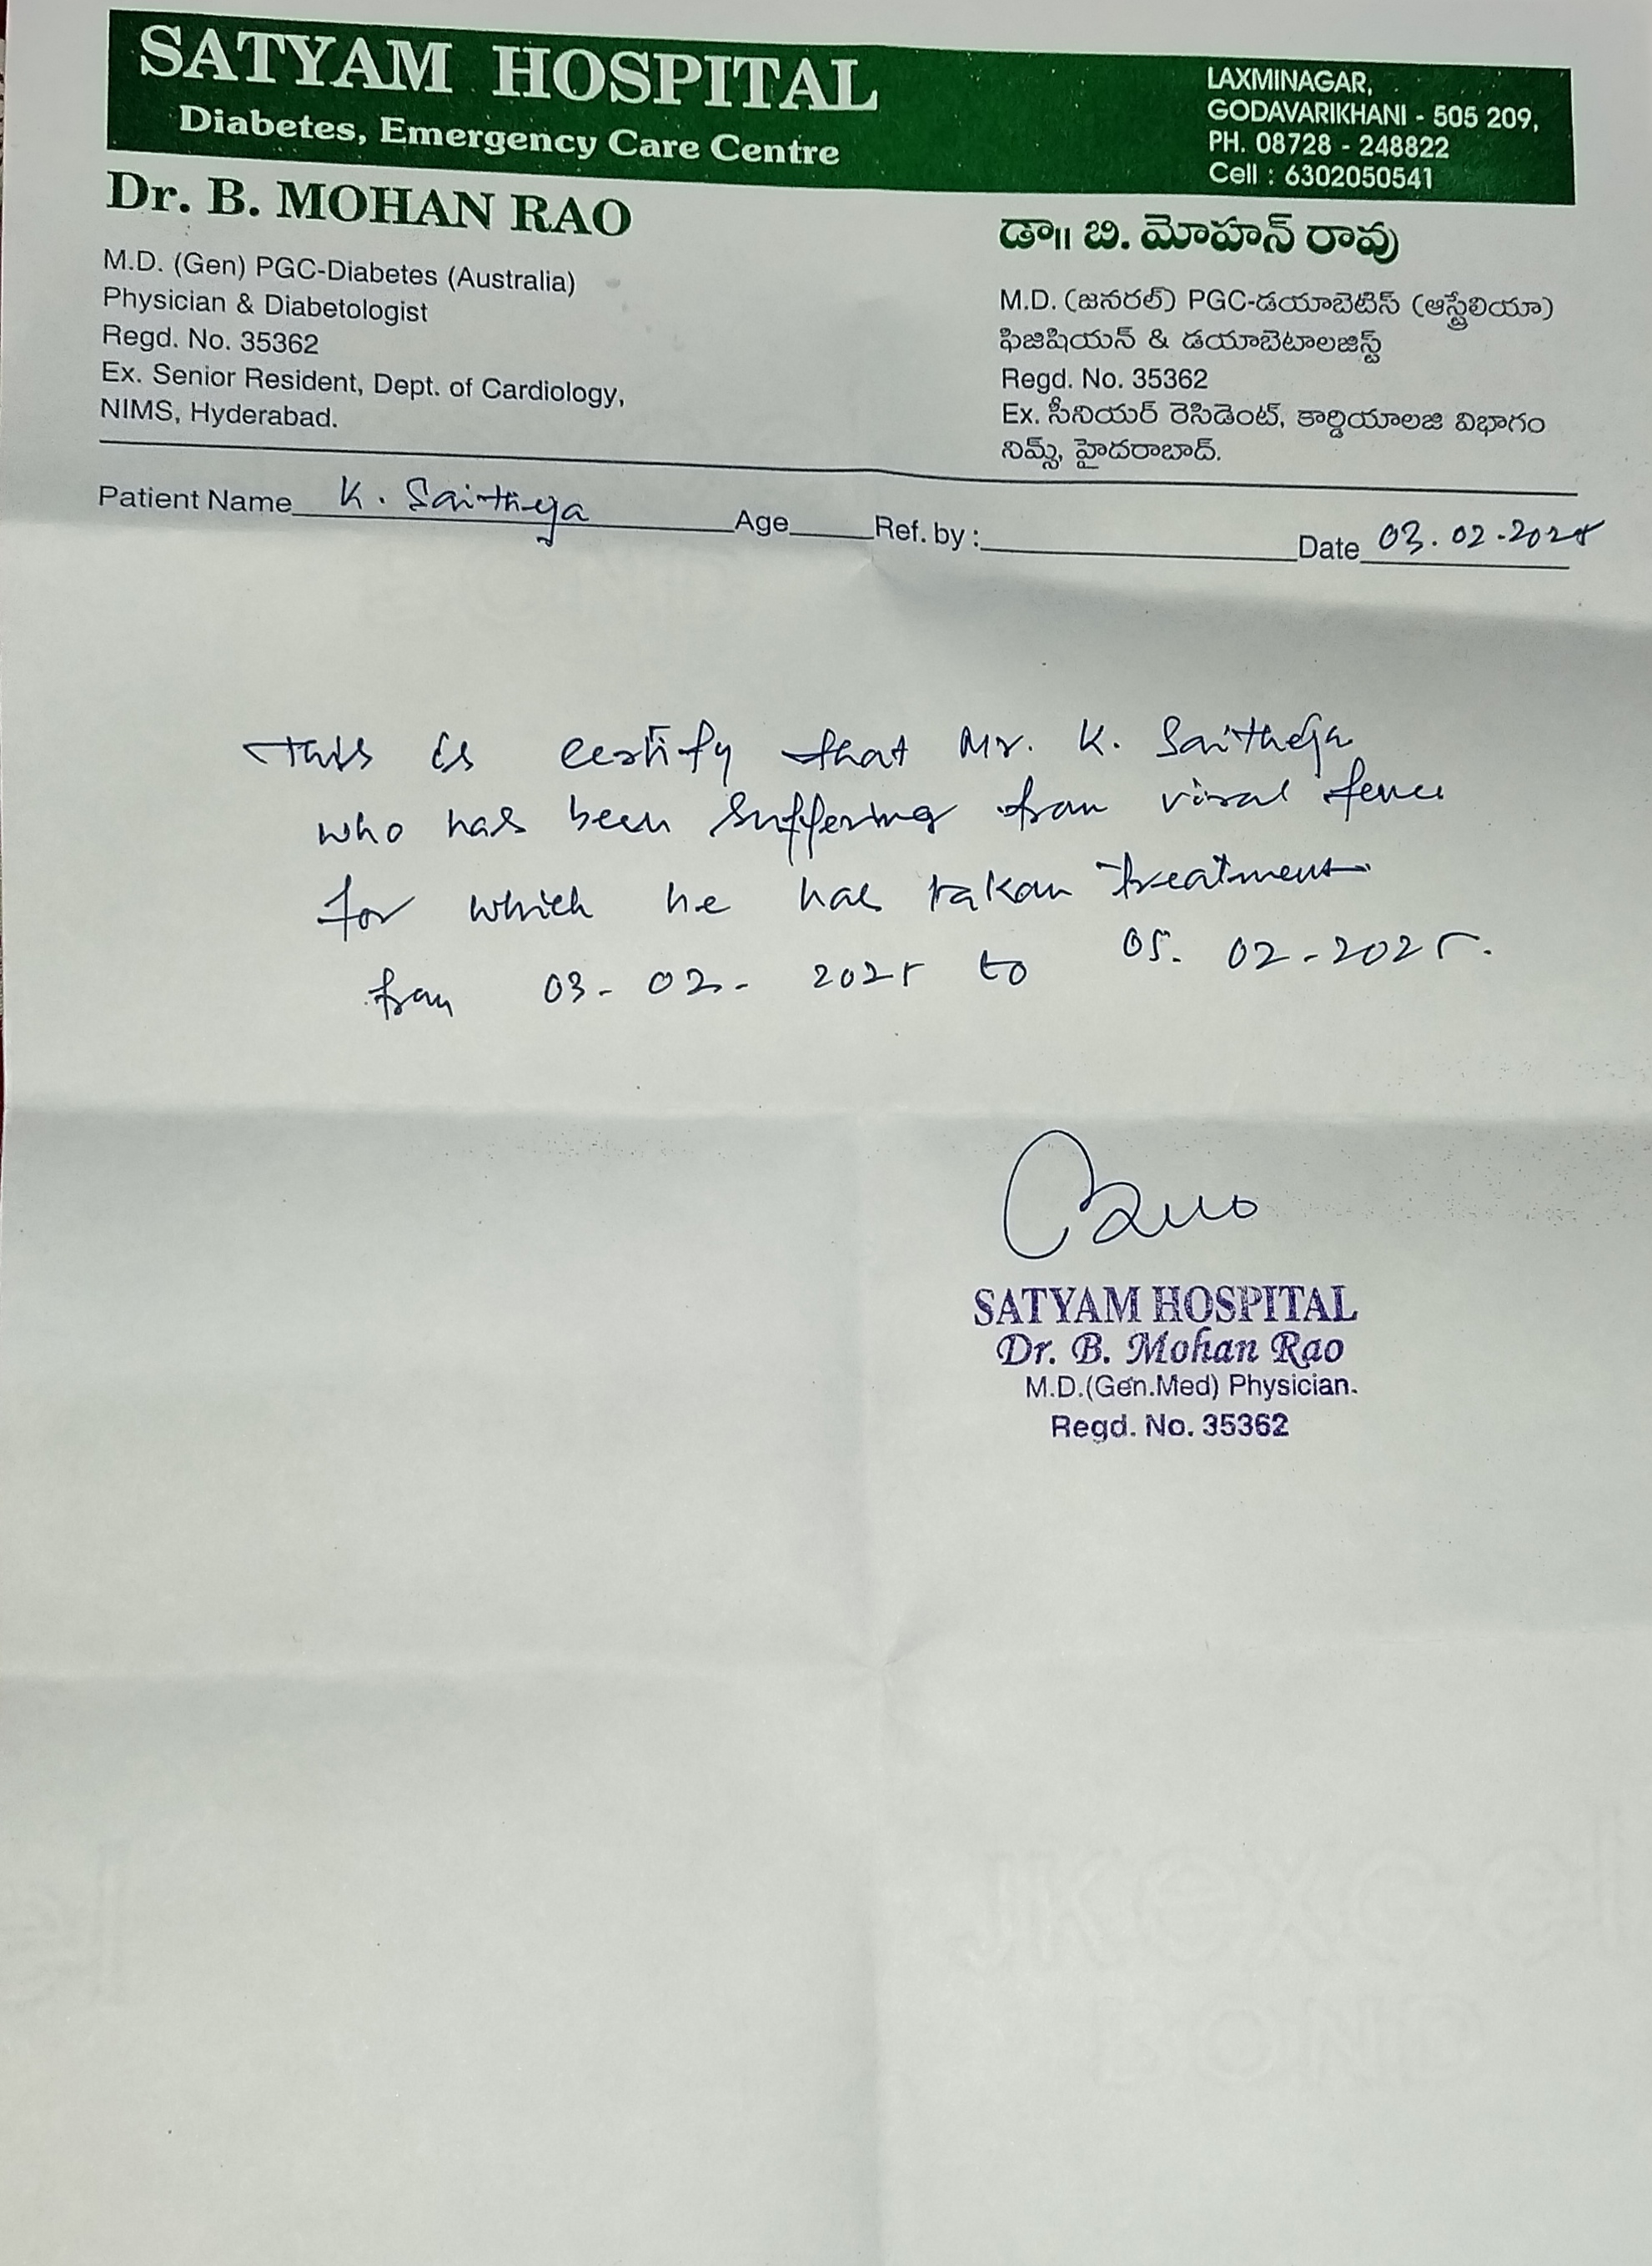 SATYAM HOSPITAL
Diabetes, Emergency Care Centre
LAXMINAGAR,
GODAVARIKHANI - 505 209,
PH. 08728 - 248822
Cell : 6302050541
Dr. B. MOHAN RAO
M.D. (Gen) PGC-Diabetes (Australia)
Physician & Diabetologist
Regd. No. 35362
Ex. Senior Resident, Dept. of Cardiology,
NIMS, Hyderabad.
డా॥ బి. మోహన్ రావు
M.D. (జనరల్) PGC-డయాబెటిస్ (ఆస్ట్రేలియా)
ఫిజిషియన్ & డయాబెటాలజిస్ట్
Regd. No. 35362
Ex. సీనియర్ రెసిడెంట్, కార్డియాలజి విభాగం
నిమ్స్, హైదరాబాద్.
Patient Name K. Saitheja Age Ref. by : Date 03.02.2025
This is certify that Mr. K. Saitheja
who has been suffering from viral fever
for which he has taken treatment
from 03-02-2025 to 05.02-2025.
SATYAM HOSPITAL
Dr. B. Mohan Rao
M.D.(Gen.Med) Physician.
Regd. No. 35362